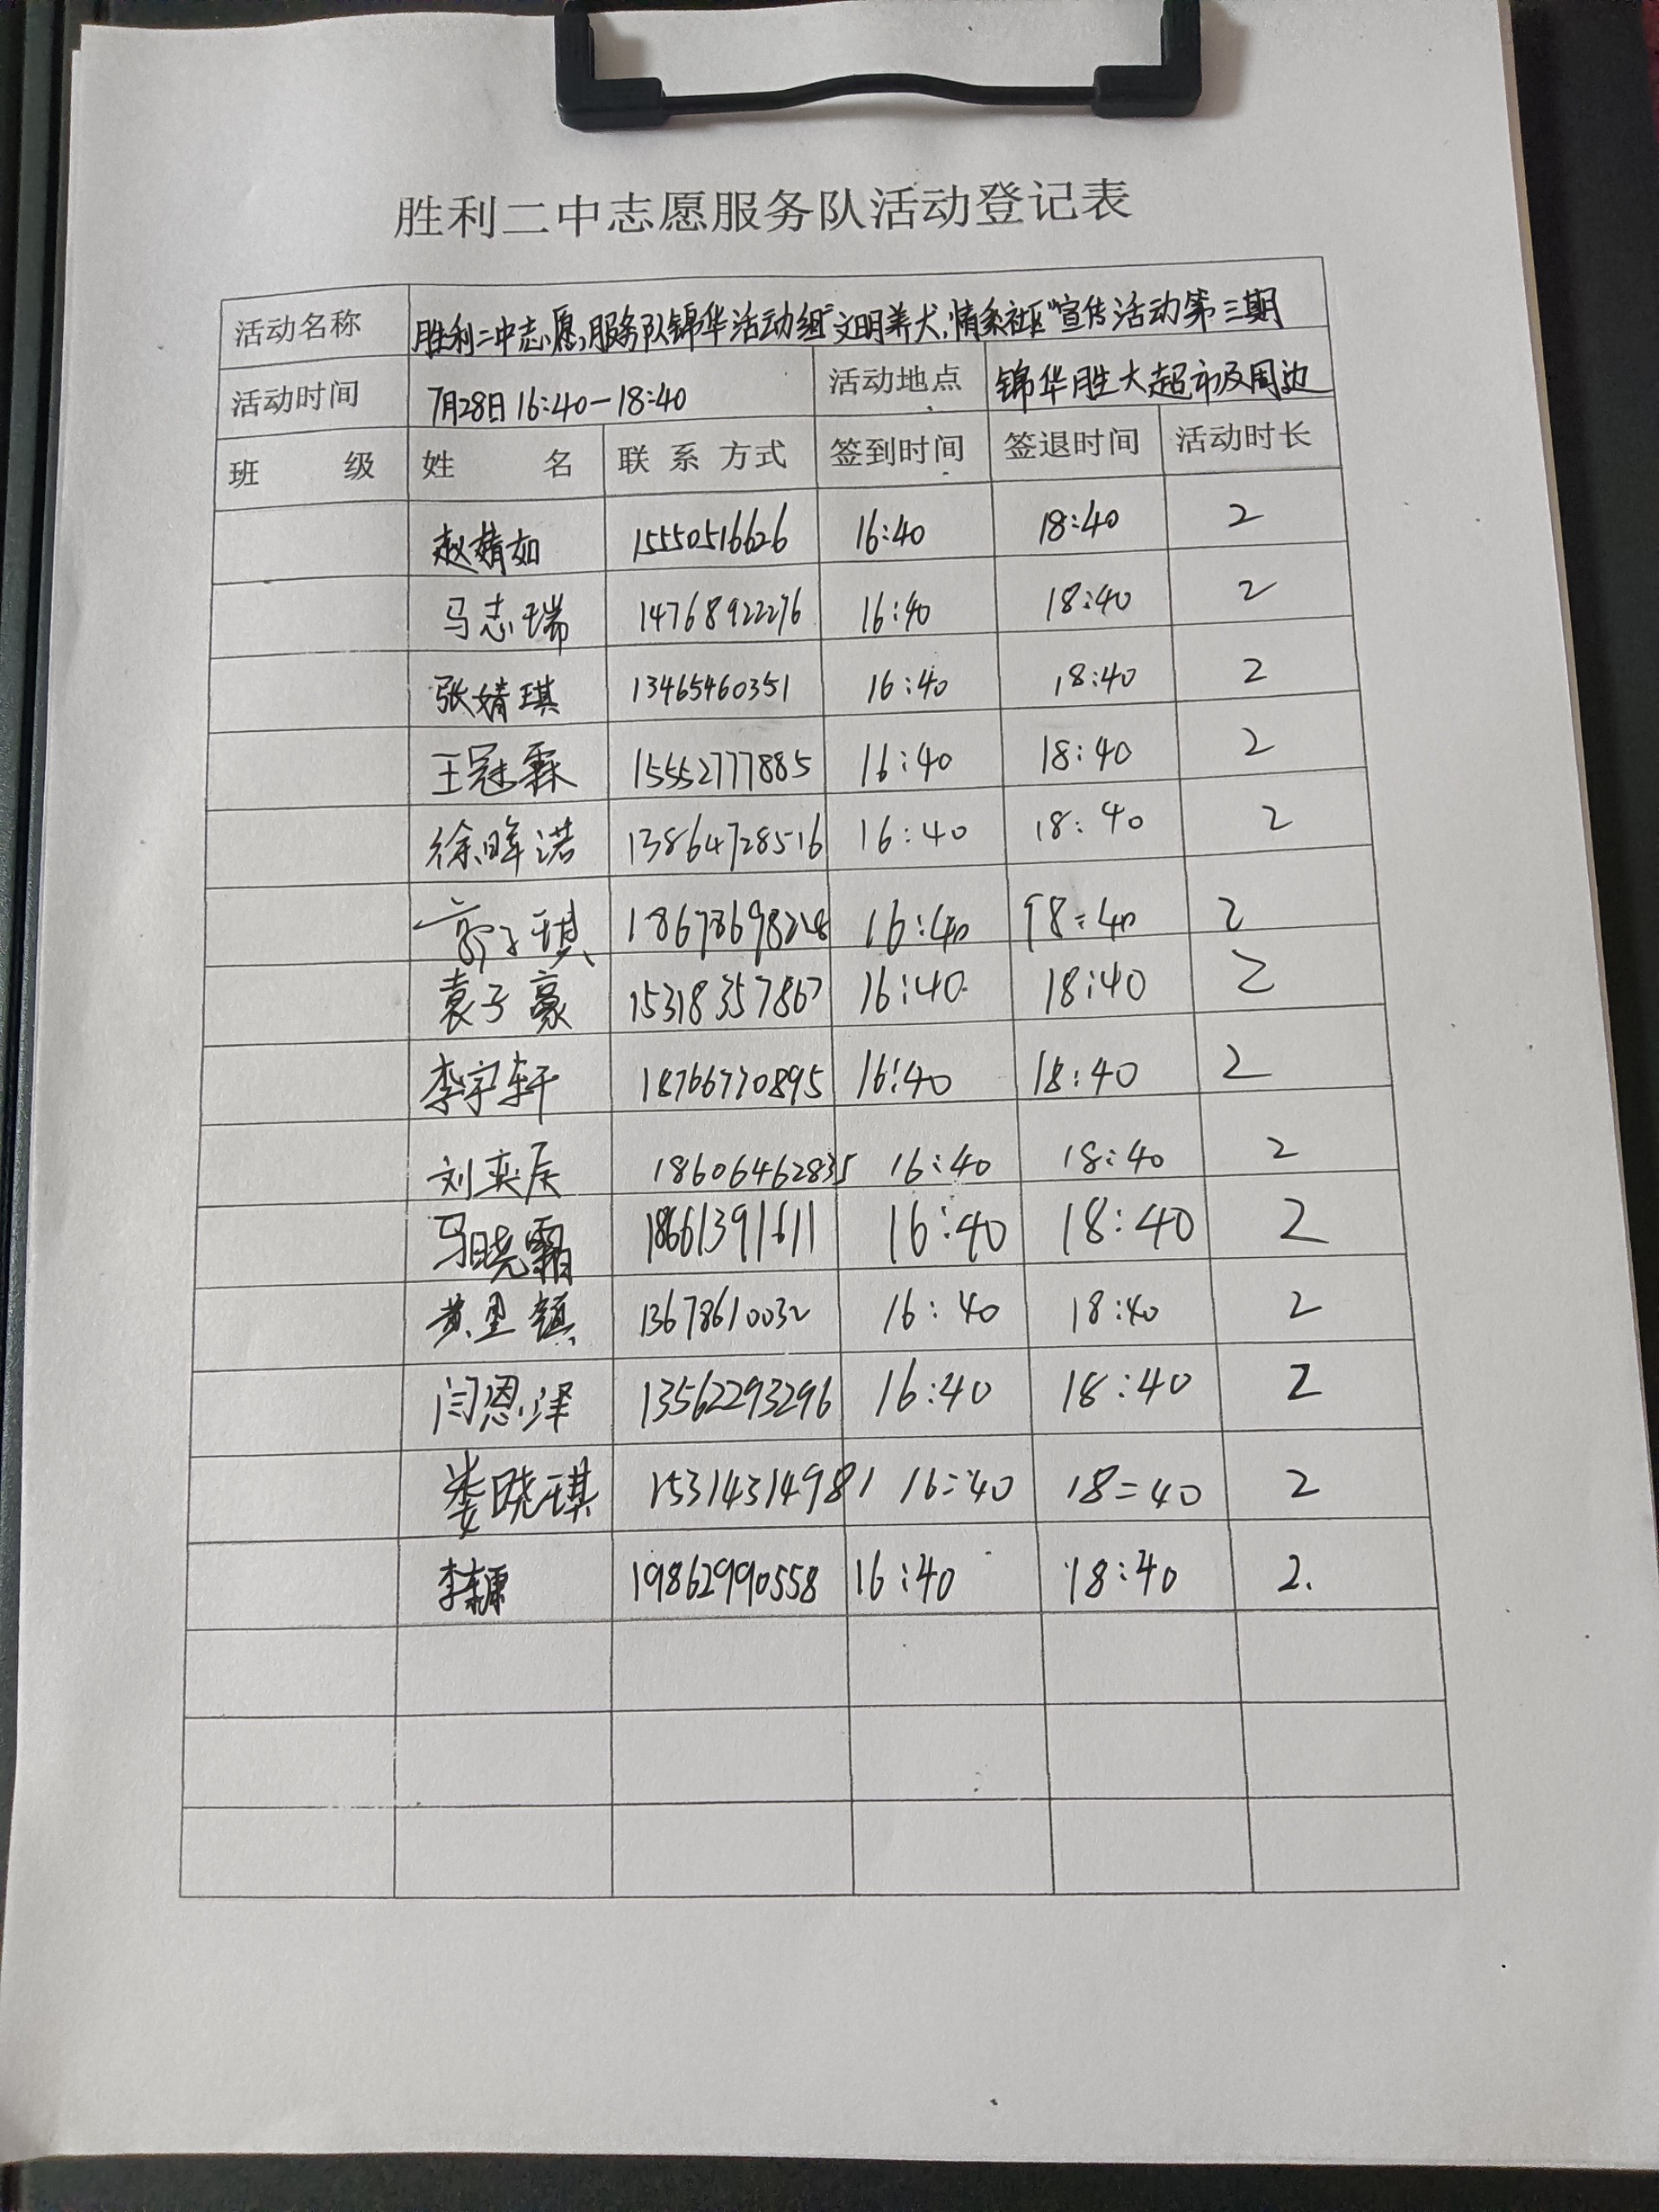 胜利二中志愿服务队活动登记表
活动名称 胜利二中志愿服务队锦华活动组"文明养犬,情系社区"宣传活动第三期
活动时间 7月28日16:40—18:40 活动地点 锦华胜大超市及周边
班 级 姓 名 联系方式 签到时间 签退时间 活动时长
赵婧如 15550516626 16:40 18:40 2
马志瑞 14768922276 16:40 18:40 2
张婧琪 13465460351 16:40 18:40 2
王冠霖 15552777885 16:40 18:40 2
徐晖诺 13864728516 16:40 18:40 2
16:40 18:40 2
袁子豪 15318357867 16:40 18:40 2
李宇轩 18766770895 16:40 18:40 2
刘奕辰 18606462835 16:40 18:40 2
马晓霜 18661391611 16:40 18:40 2
13678610032 16:40 18:40 2
闫恩泽 13562293296 16:40 18:40 2
娄晓琪 15314314981 16:40 18:40 2
19862990558 16:40 18:40 2.